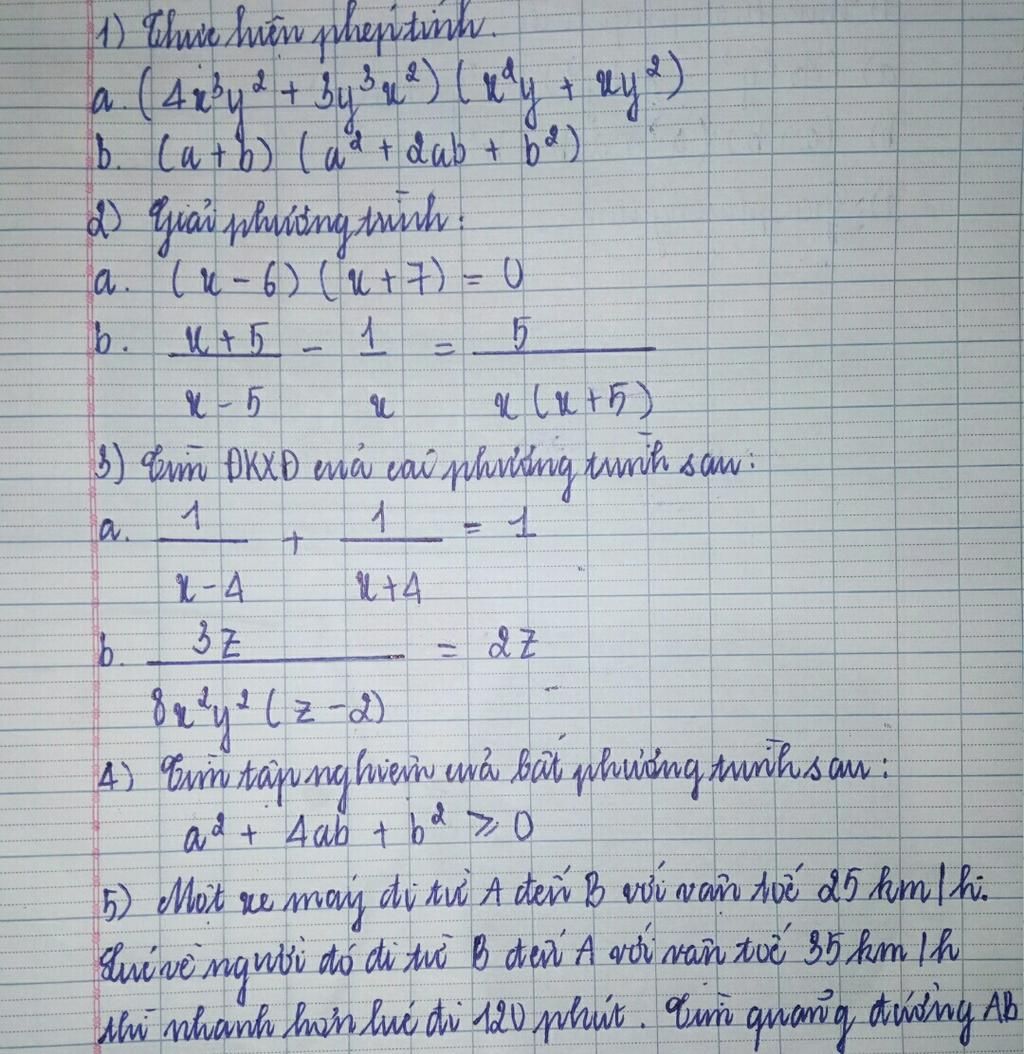 1) Thực hiện phép tính.
a. (4x³y² + 3y³x²) (x²y + xy²)
b. (a + b) (a² + 2ab + b²)
2) Giải phương trình:
a. (x - 6) (x + 7) = 0
b. x + 5 / x - 5 - 1 / x = 5 / x (x + 5)
3) Tìm ĐKXĐ của các phương trình sau:
a. 1 / x - 4 + 1 / x + 4 = 1
b. 3z / 8x²y² (z - 2) = 2z
4) Tìm tập nghiệm của bất phương trình sau:
a² + 4ab + b² ⩾ 0
5) Một xe máy đi từ A đến B với vận tốc 25 km/h.
Lúc về người đó đi từ B đến A với vận tốc 35 km/h
thì nhanh hơn lúc đi 120 phút. Tìm quãng đường AB